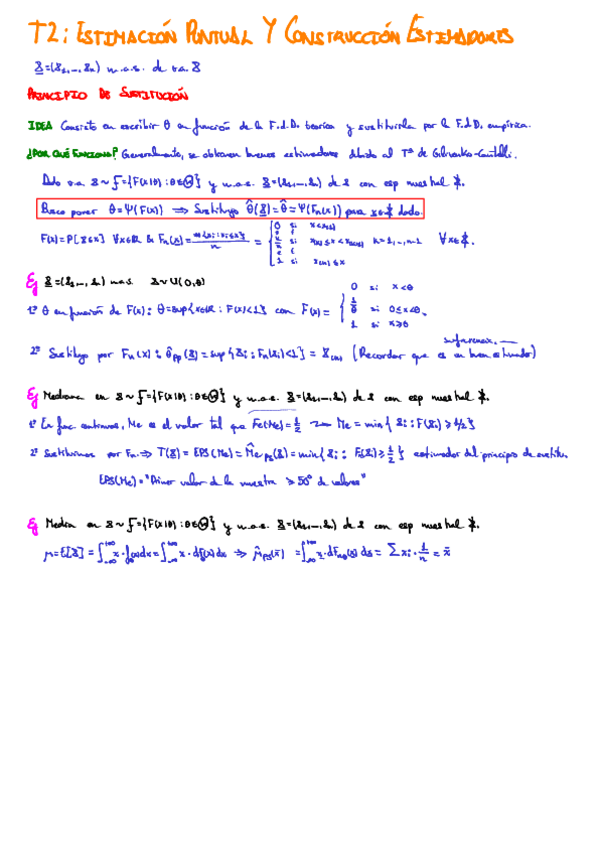 T2: ESTIMACIÓN PUNTUAL Y CONSTRUCCIÓN ESTIMADORES
X=(X1,...,Xn) m.a.s. de v.a. X
PRINCIPIO DE SUSTITUCIÓN
IDEA Consiste en escribir θ en función de la F.d.D. teórica y sustituirla por la F.d.D. empírica.
¿POR QUÉ FUNCIONA? Generalmente, se obtienen buenos estimadores debido al Tª de Glivenko-Cantelli.
Dado v.a. X ~ F={F(x|θ):θ∈Θ} y m.a.s. X=(X1,...,Xn) de X con esp muestral X.
Busco poner θ=Ψ(F(x)) ⇒ Sustituyo θ̂(X)=θ̂=Ψ(Fn(x)) para x∈X dado.
F(x)=P[X≤x] ∀x∈R & Fn(x)= #{xi:xi≤x}/n = { 0 si x<x(1) ; k/n si x(k)≤x<x(k+1) k=1,...,n-1 ; 1 si x(n)≤x ∀x∈X.
Eg X=(X1,...,Xn) m.a.s. X~U(0,θ)
1º θ en función de F(x): θ=sup{x∈R : F(x)<1} con F(x)= { 0 si x<0 ; x/θ si 0≤x<θ ; 1 si x≥θ .
2º Sustituyo por Fn(x): θ̂PS(X)=sup{Xi: Fn(Xi)<1} = X(n) (Recordar que es un buen estimador)
Eg Mediana en X ~ F={F(x|θ):θ∈Θ} y m.a.s. X=(X1,...,Xn) de X con esp muestral X.
1º En func continuas, Me es el valor tal que F(Me)=1/2 Me = min{Xi: F(Xi)≥1/2}
2º Sustituimos por Fn ⇒ T(X) = EPS(Me) = M̂ePS(X)=min{Xi: Fn(Xi)≥1/2} estimador del principio de sustitu.
EPS(Me)="Primer valor de la muestra ≥ 50% de valores"
Eg Media en X ~ F={F(x|θ):θ∈Θ} y m.a.s. X=(X1,...,Xn) de X con esp muestral X.
μ=E[X] = ∫_{-∞}^{+∞} x·f(x)dx = ∫_{-∞}^{+∞} x·dF(x)dx ⇒ μ̂PS(x̄) = ∫_{-∞}^{+∞} x·dFn(x)dx = Σ xi·1/n = x̄